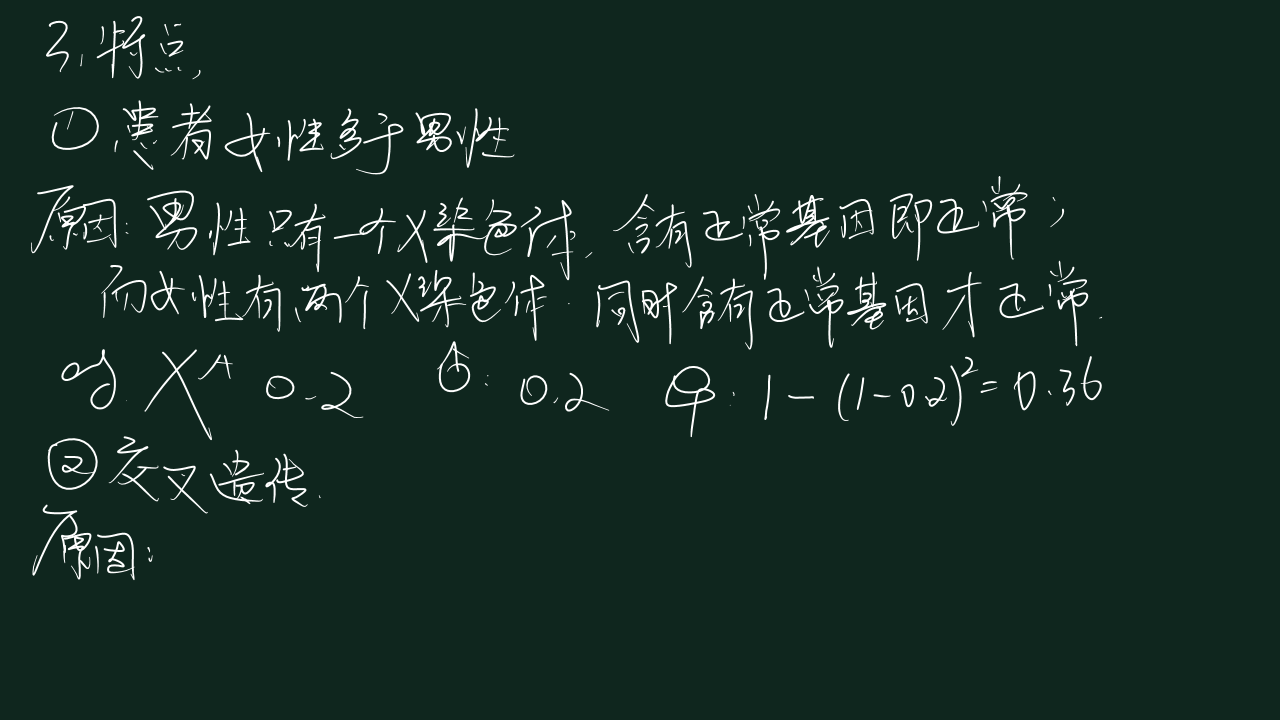 3.特点.
①患者女性多于男性
原因:男性只有一个X染色体,含有正常基因即正常;
而女性有两个X染色体.同时含有正常基因才正常.
eg. X^A 0.2 ♂: 0.2 ♀: 1-(1-0.2)²=0.36
②交叉遗传.
原因: